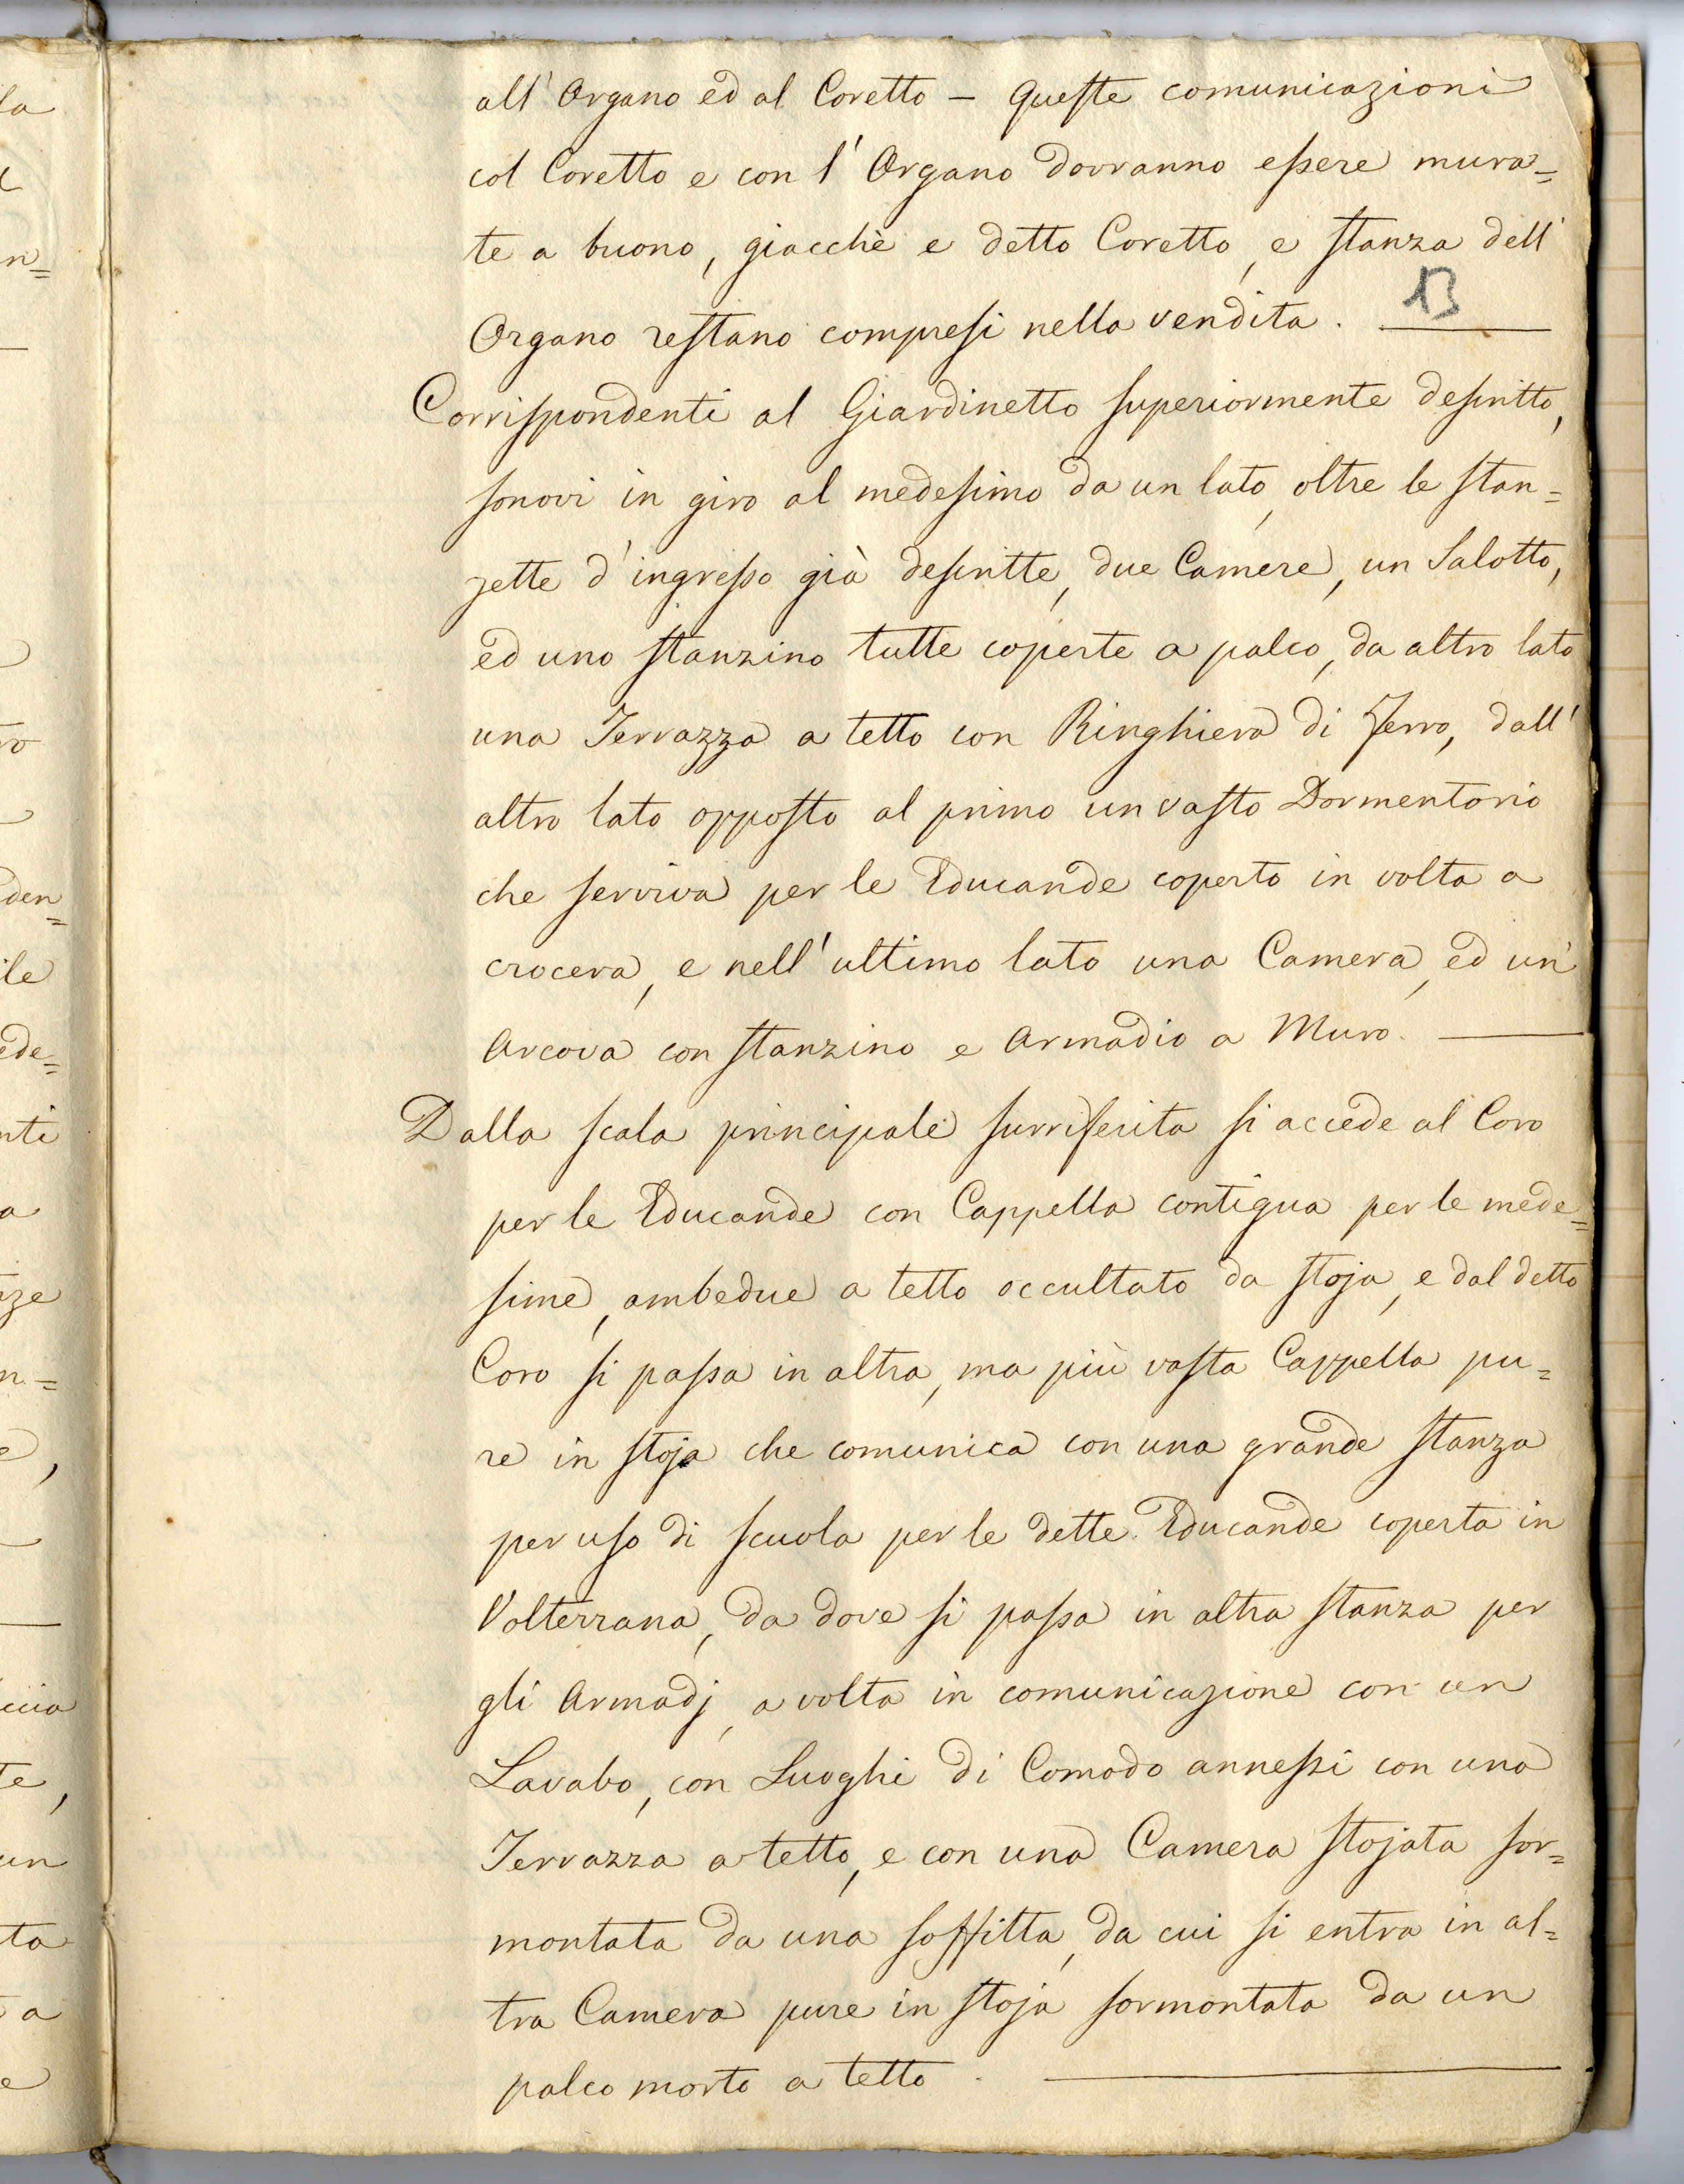 all' Organo ed al Coretto – Queste comunicazioni
col Coretto e con l' Organo dovranno essere mura=
te a buono, giacchè e detto Coretto, e stanza dell'
Organo restano compresi nella vendita.
13
Corrispondenti al Giardinetto superiormente descritto,
sonovi in giro al medesimo da un lato, oltre le stan=
zette d'ingresso già descritte, due Camere, un Salotto,
ed uno stanzino tutte coperte a palco, da altro lato
una Terrazza a tetto con Ringhiera di ferro, dall'
altro lato opposto al primo un vasto Dormentorio
che serviva per le Educande coperto in volta a
crocera, e nell'ultimo lato una Camera, ed un'
Arcova con stanzino e Armadio a Muro.
Dalla scala principale surriferita si accede al Coro
per le Educande con Cappella contigua per le mede=
sime, ambedue a tetto occultato da stoja, e dal detto
Coro si passa in altra, ma più vasta Cappella pu=
re in stoja che comunica con una grande stanza
per uso di scuola per le dette Educande coperta in
Volterrana, da dove si passa in altra stanza per
gli Armadj, a volta in comunicazione con un
Lavabo, con Luoghi di Comodo annessi con una
Terrazza a tetto, e con una Camera stojata sor=
montata da una soffitta, da cui si entra in al=
tra Camera pure in stoja sormontata da un
palco morto a tetto.